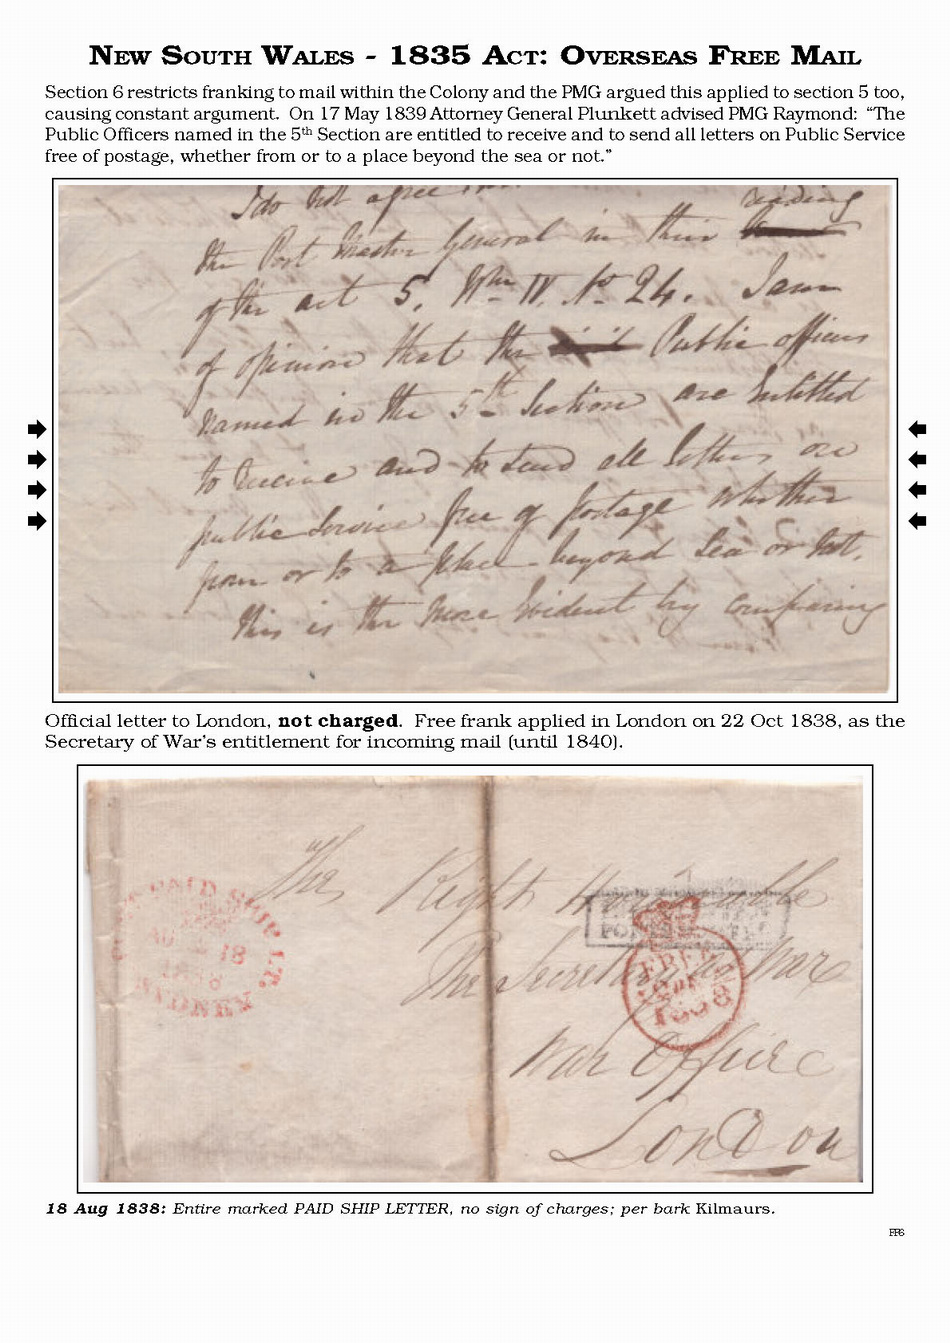 NEW SOUTH WALES - 1835 ACT: OVERSEAS FREE MAIL
Section 6 restricts franking to mail within the Colony and the PMG argued this applied to section 5 too,
causing constant argument. On 17 May 1839 Attorney General Plunkett advised PMG Raymond: “The
Public Officers named in the 5th Section are entitled to receive and to send all letters on Public Service
free of postage, whether from or to a place beyond the sea or not.”
I do not agree
reading
the Post Master General in their
of the act 5. Wm IV. No 24. I am
of opinion that the Public officers
named in the 5th Section are entitled
to receive and to send all letters on
public service free of postage whether
from or to a place beyond sea or not.
this is the more evident by comparing
Official letter to London, not charged. Free frank applied in London on 22 Oct 1838, as the
Secretary of War’s entitlement for incoming mail (until 1840).
PAID SHIP LT.
18
1838
SYDNEY
The Right Honorable
The Secretary at War
FREE
1838
War Office
London
18 Aug 1838: Entire marked PAID SHIP LETTER, no sign of charges; per bark Kilmaurs.